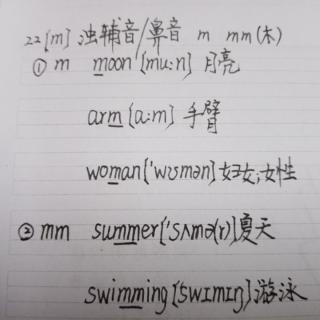 22 [m] 浊辅音/鼻音 m mm(木)
① m moon [mu:n] 月亮
arm [a:m] 手臂
woman ['wʊmən] 妇女;女性
② mm summer ['sʌmə(r)] 夏天
swimming [swɪmɪŋ] 游泳